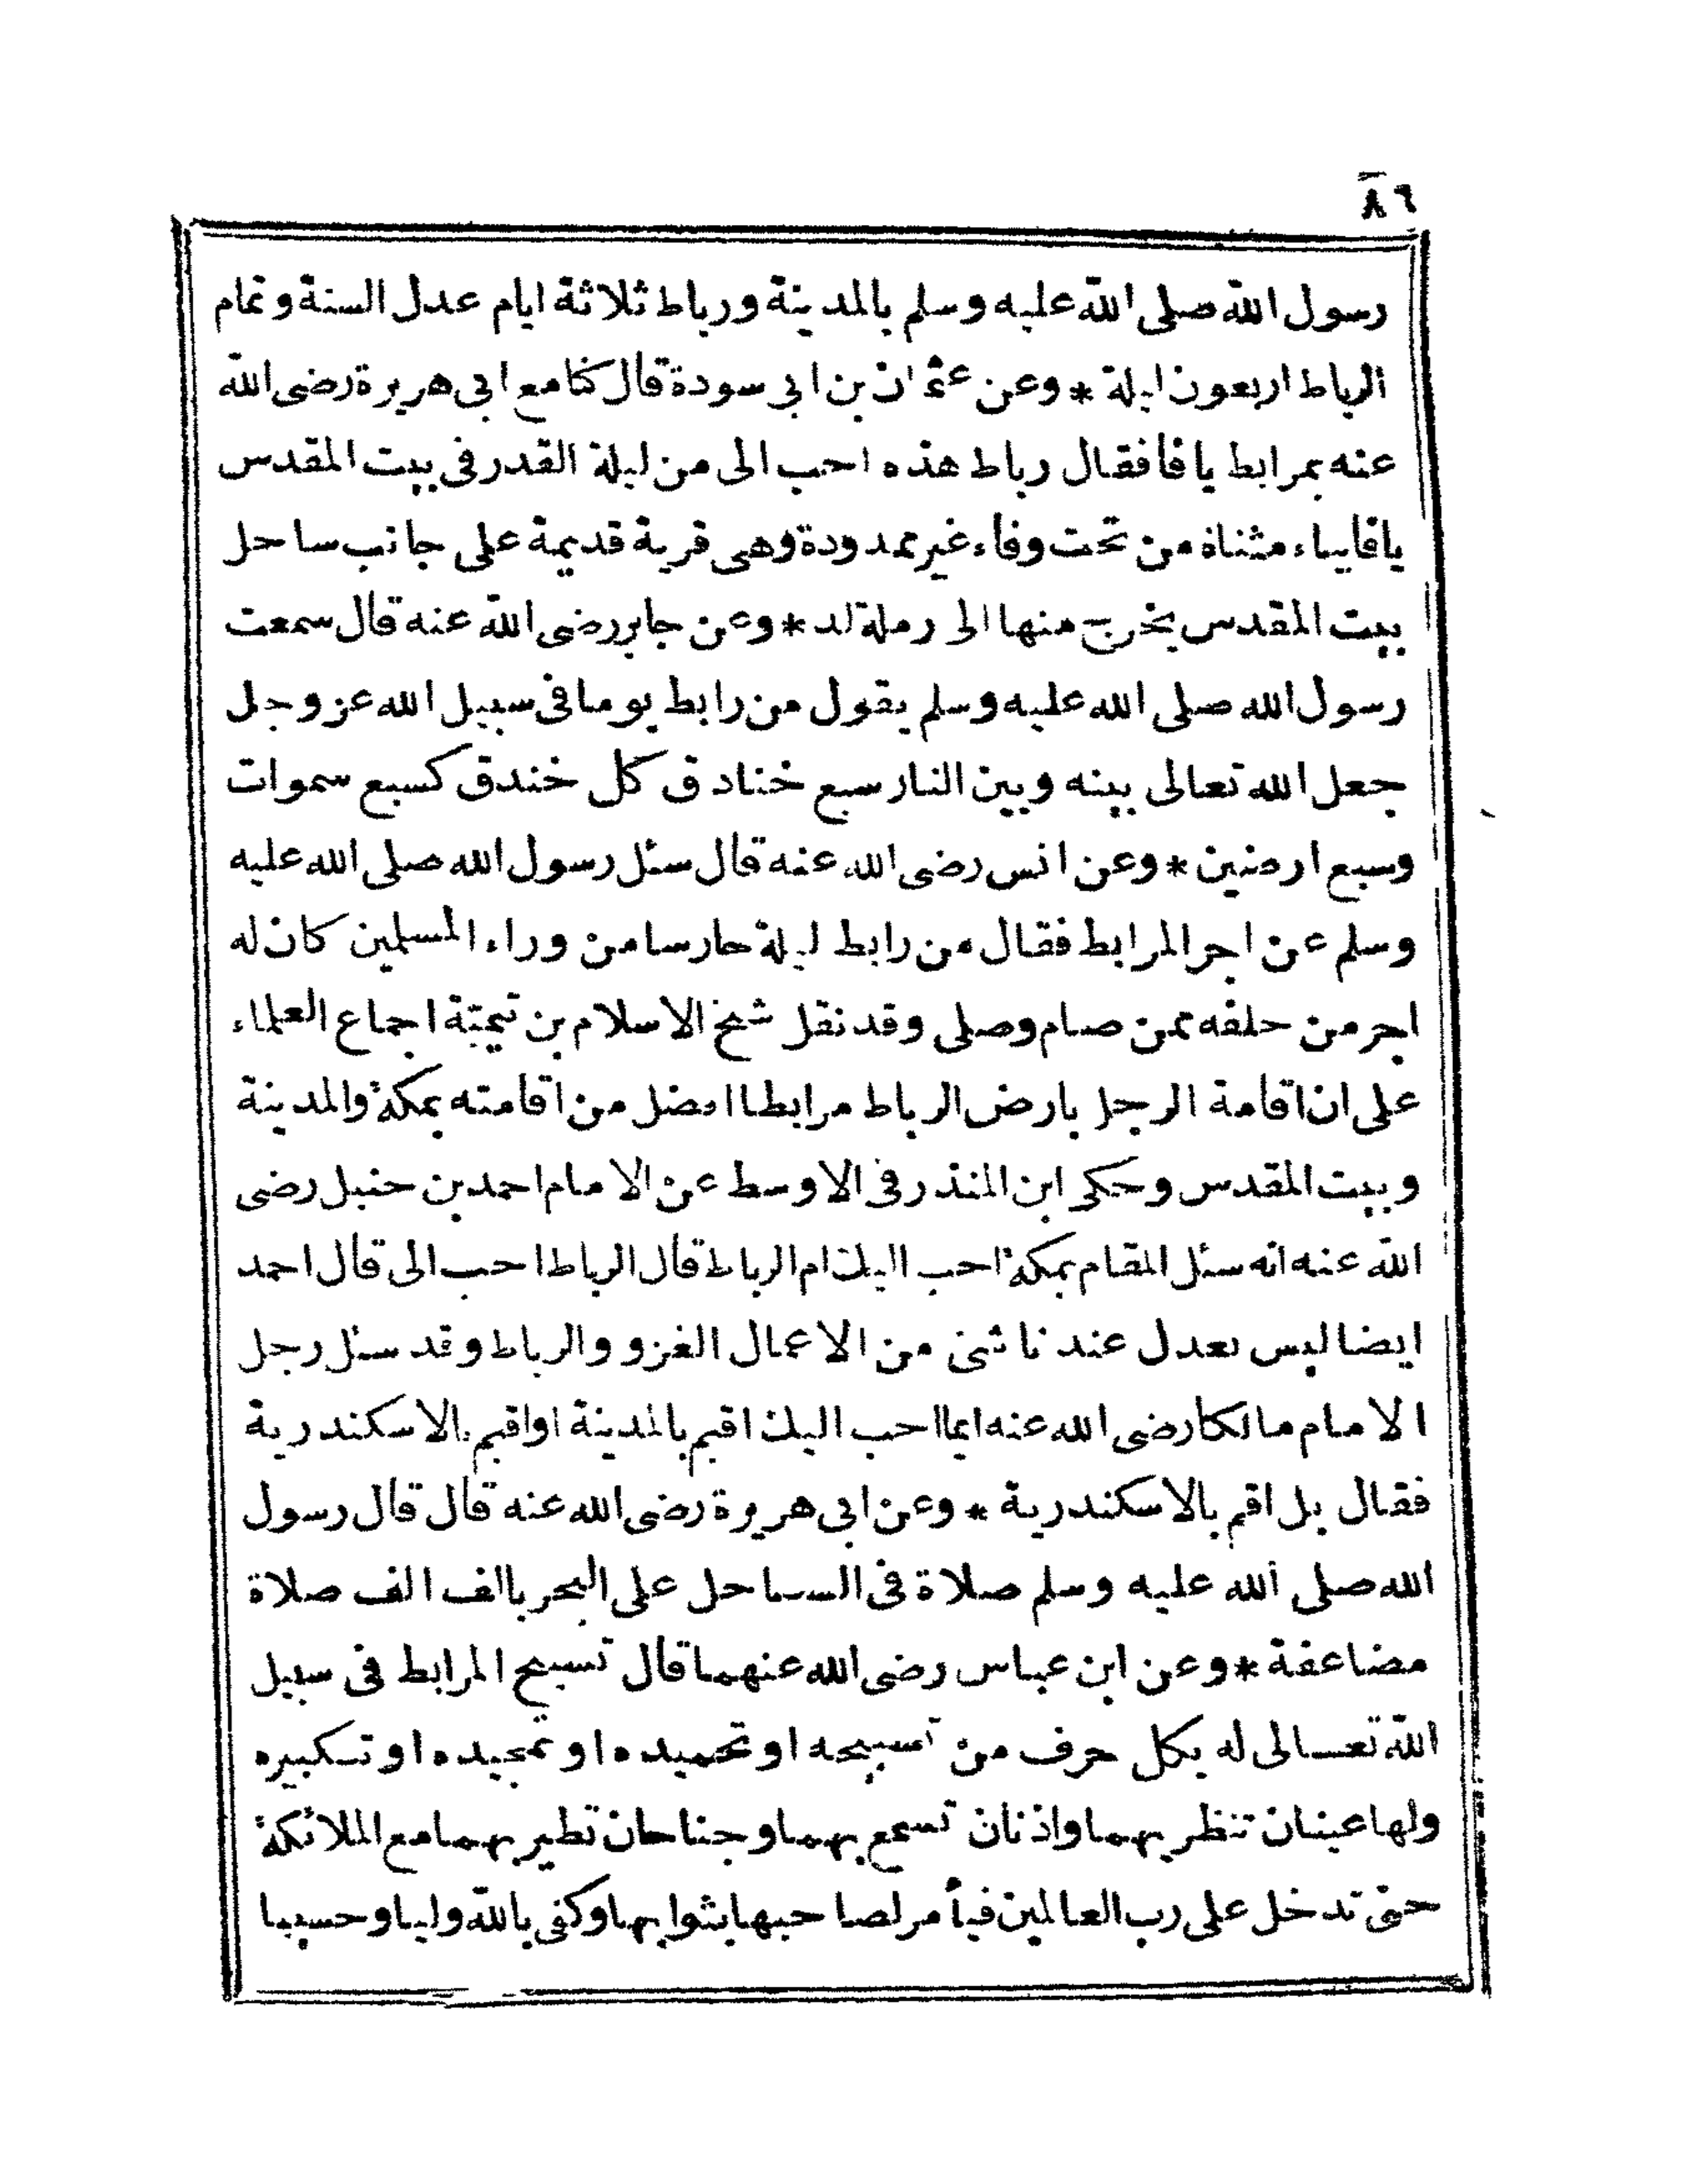 ٨٦
رسول الله صلى الله عليه وسلم بالمدينة ورباط ثلاثة ايام عدل السنة وتمام
الرباط اربعون ليلة * وعن عثمان بن ابي سودة قال كنا مع ابى هريرة رضى الله
عنه بمرابط يافا فقال رباط هذه احب الى من ليلة القدر فى بيت المقدس
يافا بياء مثناة من تحت وفاء غير ممدودة وهى قرية قديمة على جانب ساحل
بيت المقدس يخرج منها الى رملة لد * وعن جابر رضى الله عنه قال سمعت
رسول الله صلى الله عليه وسلم يقول من رابط يوما فى سبيل الله عز وجل
جعل الله تعالى بينه وبين النار سبع خنادق كل خندق كسبع سموات
وسبع ارضين * وعن انس رضى الله عنه قال سئل رسول الله صلى الله عليه
وسلم عن اجر المرابط فقال من رابط ليلة حارسا من وراء المسلمين كان له
اجر من خلفه ممن صام وصلى وقد نقل شيخ الاسلام بن تيمية اجماع العلماء
على ان اقامة الرجل بارض الرباط مرابطا افضل من اقامته بمكة والمدينة
وبيت المقدس وحكى ابن المنذر فى الاوسط عن الامام احمد بن حنبل رضى
الله عنه انه سئل المقام بمكة احب اليك ام الرباط قال الرباط احب الى قال احمد
ايضا ليس يعدل عندنا شئ من الاعمال الغزو والرباط وقد سئل رجل
الامام مالكا رضى الله عنه ايما احب اليك اقيم بالمدينة او اقيم بالاسكندرية
فقال بل اقم بالاسكندرية * وعن ابى هريرة رضى الله عنه قال قال رسول
الله صلى الله عليه وسلم صلاة فى الساحل على البحر بالف الف صلاة
مضاعفة * وعن ابن عباس رضى الله عنهما قال تسبيح المرابط فى سبيل
الله تعالى له بكل حرف من تسبيحه او تحميده او تمجيده او تكبيره
ولها عينان تنظر بهما واذنان تسمع بهما وجناحان تطير بهما مع الملائكة
حتى تدخل على رب العالمين فيأمر لصاحبها بثوابها وكفى بالله وليا وحسيبا